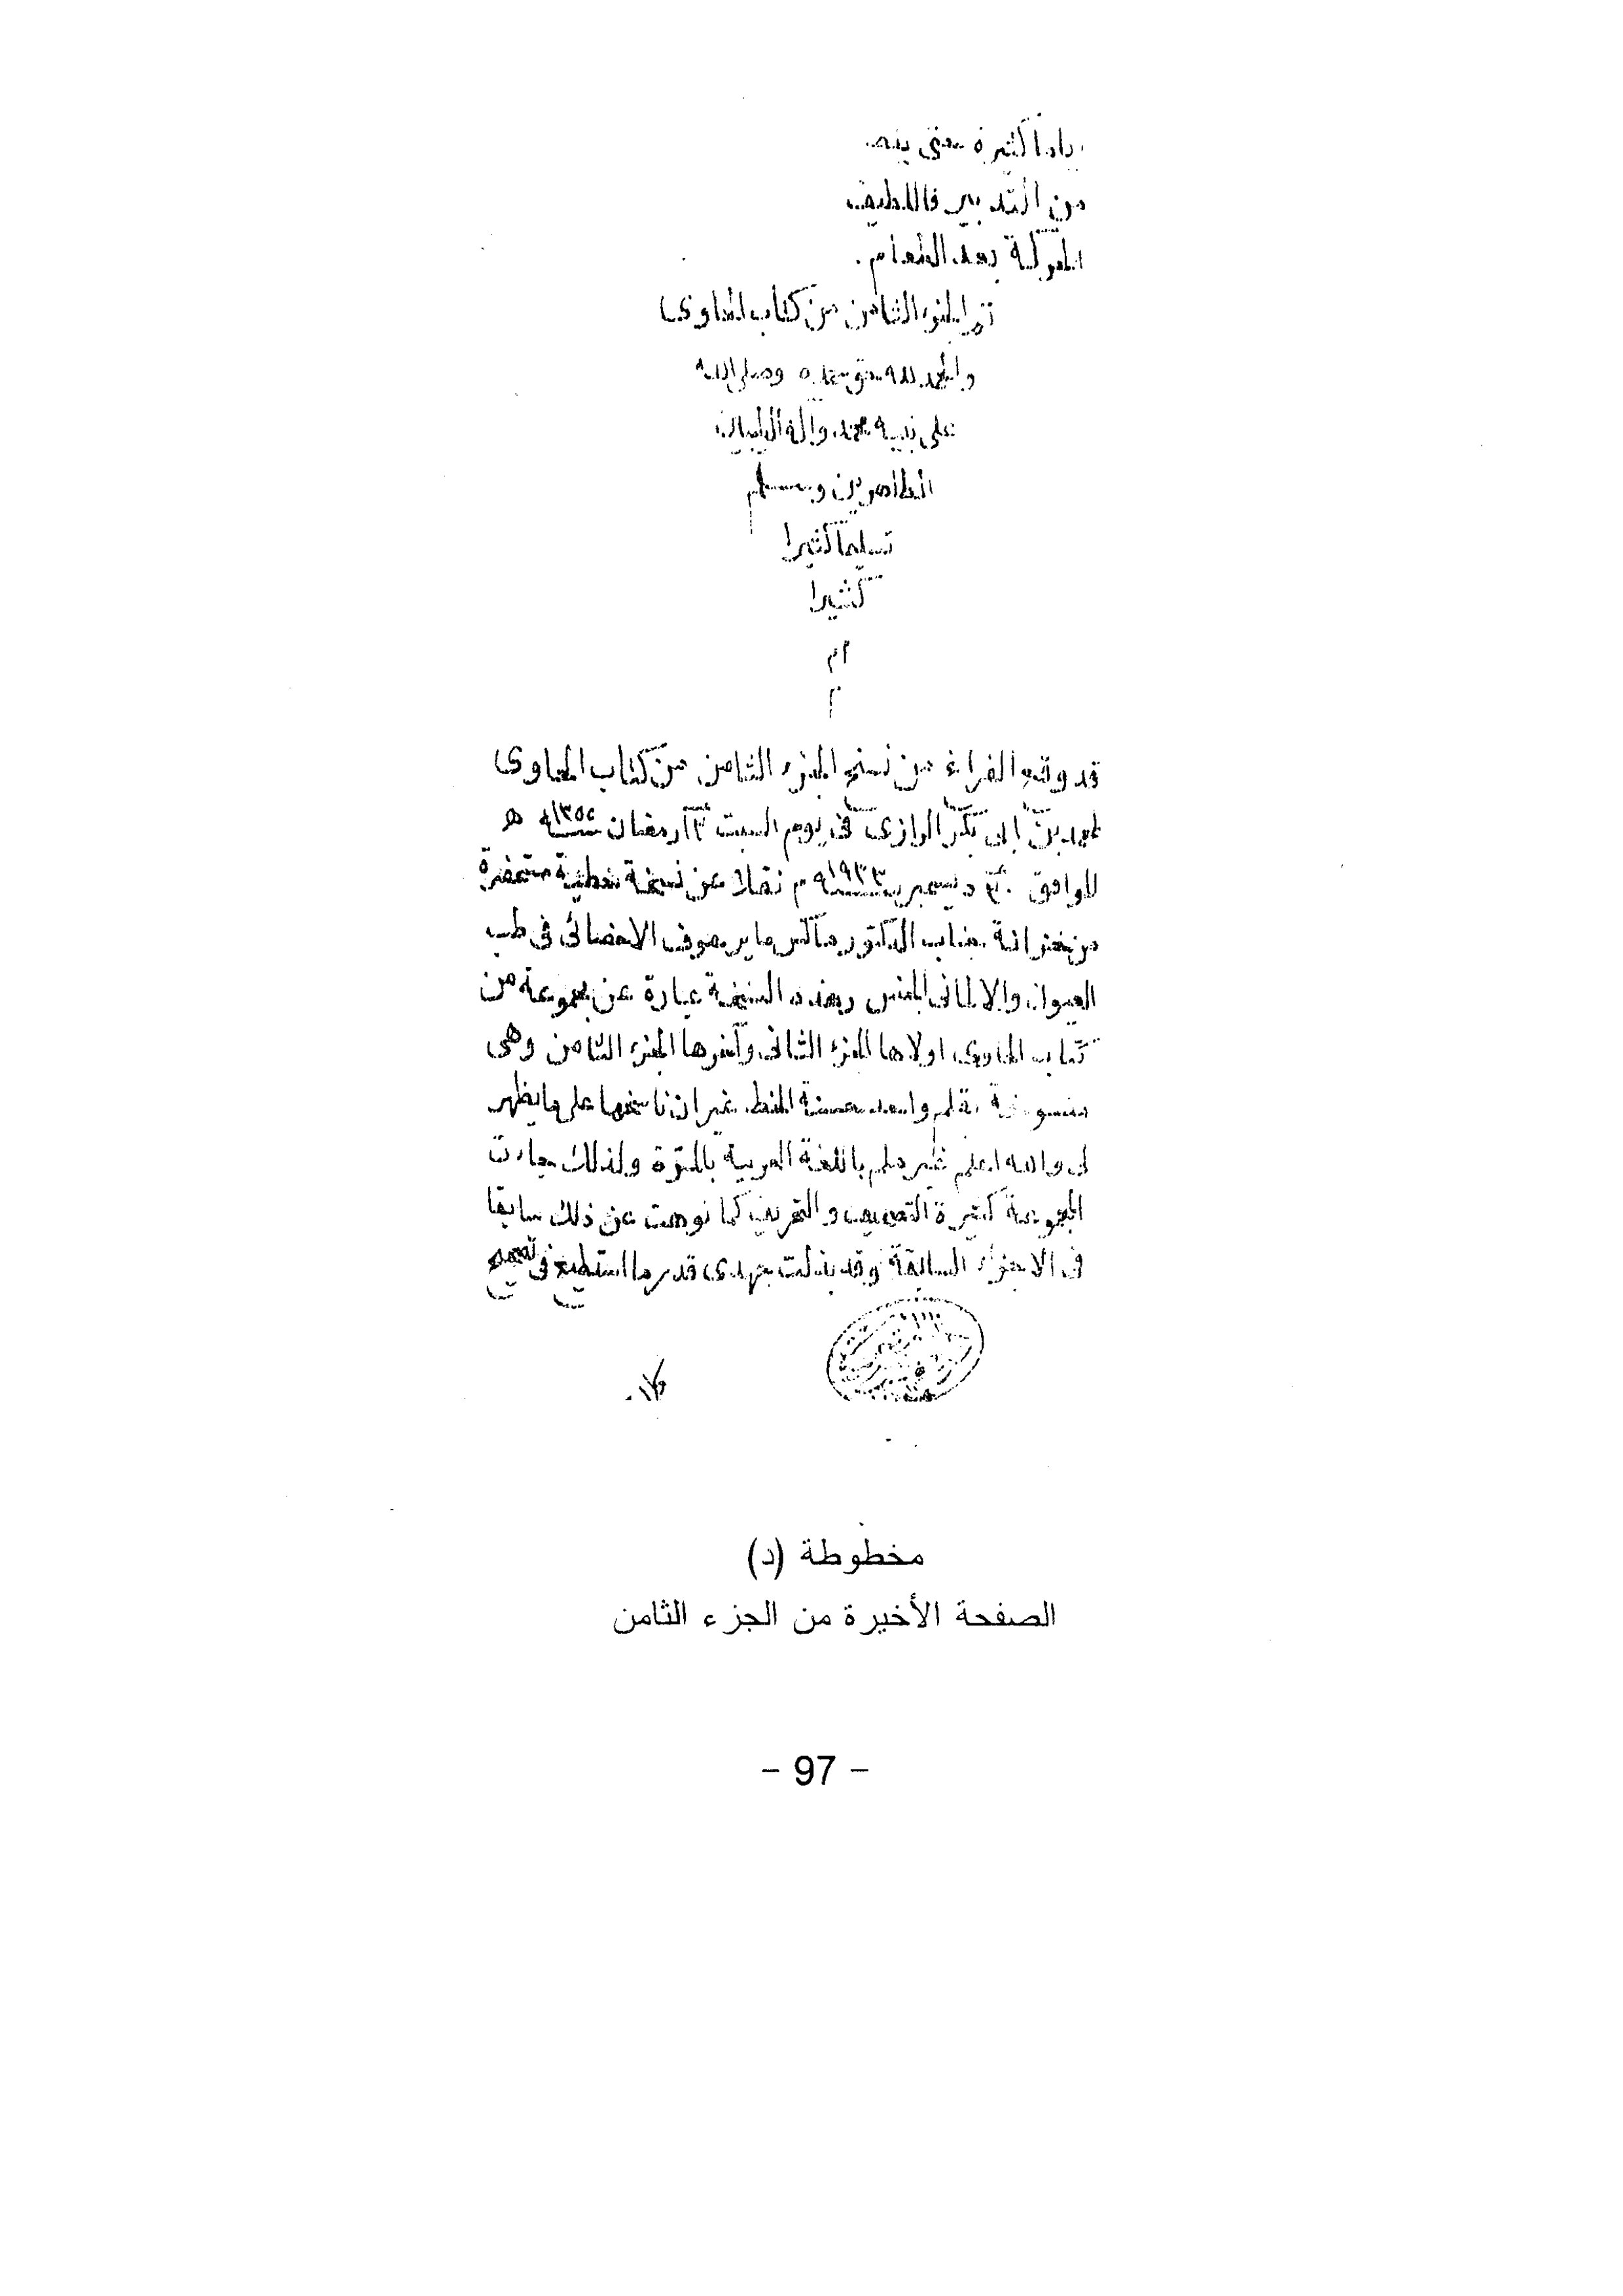 كثيرة
من التدبير فاللطيف
الحركة بعد الطعام.
تم الجزء الثامن من كتاب الحاوى
والحمد لله حق حمده وصلى الله
على نبيه محمد وآله الطيبين
الطاهرين وسلم
تسليما كثيرا
كثيرا
م
قد وقع الفراغ من نسخ الجزء الثامن من كتاب الحاوى
لمحمد بن ابى بكر الرازى فى يوم السبت ١٣ رمضان سنة ١٣٥٢ هـ
الموافق ٣٠ ديسمبر سنة ١٩٣٣ م نقلا عن نسخة خطية مستحضرة
من خزانة جناب الدكتور ماكس مايرهوف الاخصائى فى طب
العيون والالمانى الجنس وهذه النسخة عبارة عن مجموعة من
كتاب الحاوى اولاها الجزء الثانى وآخرها الجزء الثامن وهى
منسوخة بقلم واحد حسنة الخط غير ان ناسخها على ما يظهر
لى والله اعلم غير ملم باللغة العربية بالمرة ولذلك جاءت
المجموعة كثيرة التصحيف والتحريف كما نوهت عن ذلك سابقا
فى الاجزاء السابقة وقد بذلت جهدى قدر ما استطيع فى تصحيح
مخطوطة (د)
الصفحة الأخيرة من الجزء الثامن
- 97 -